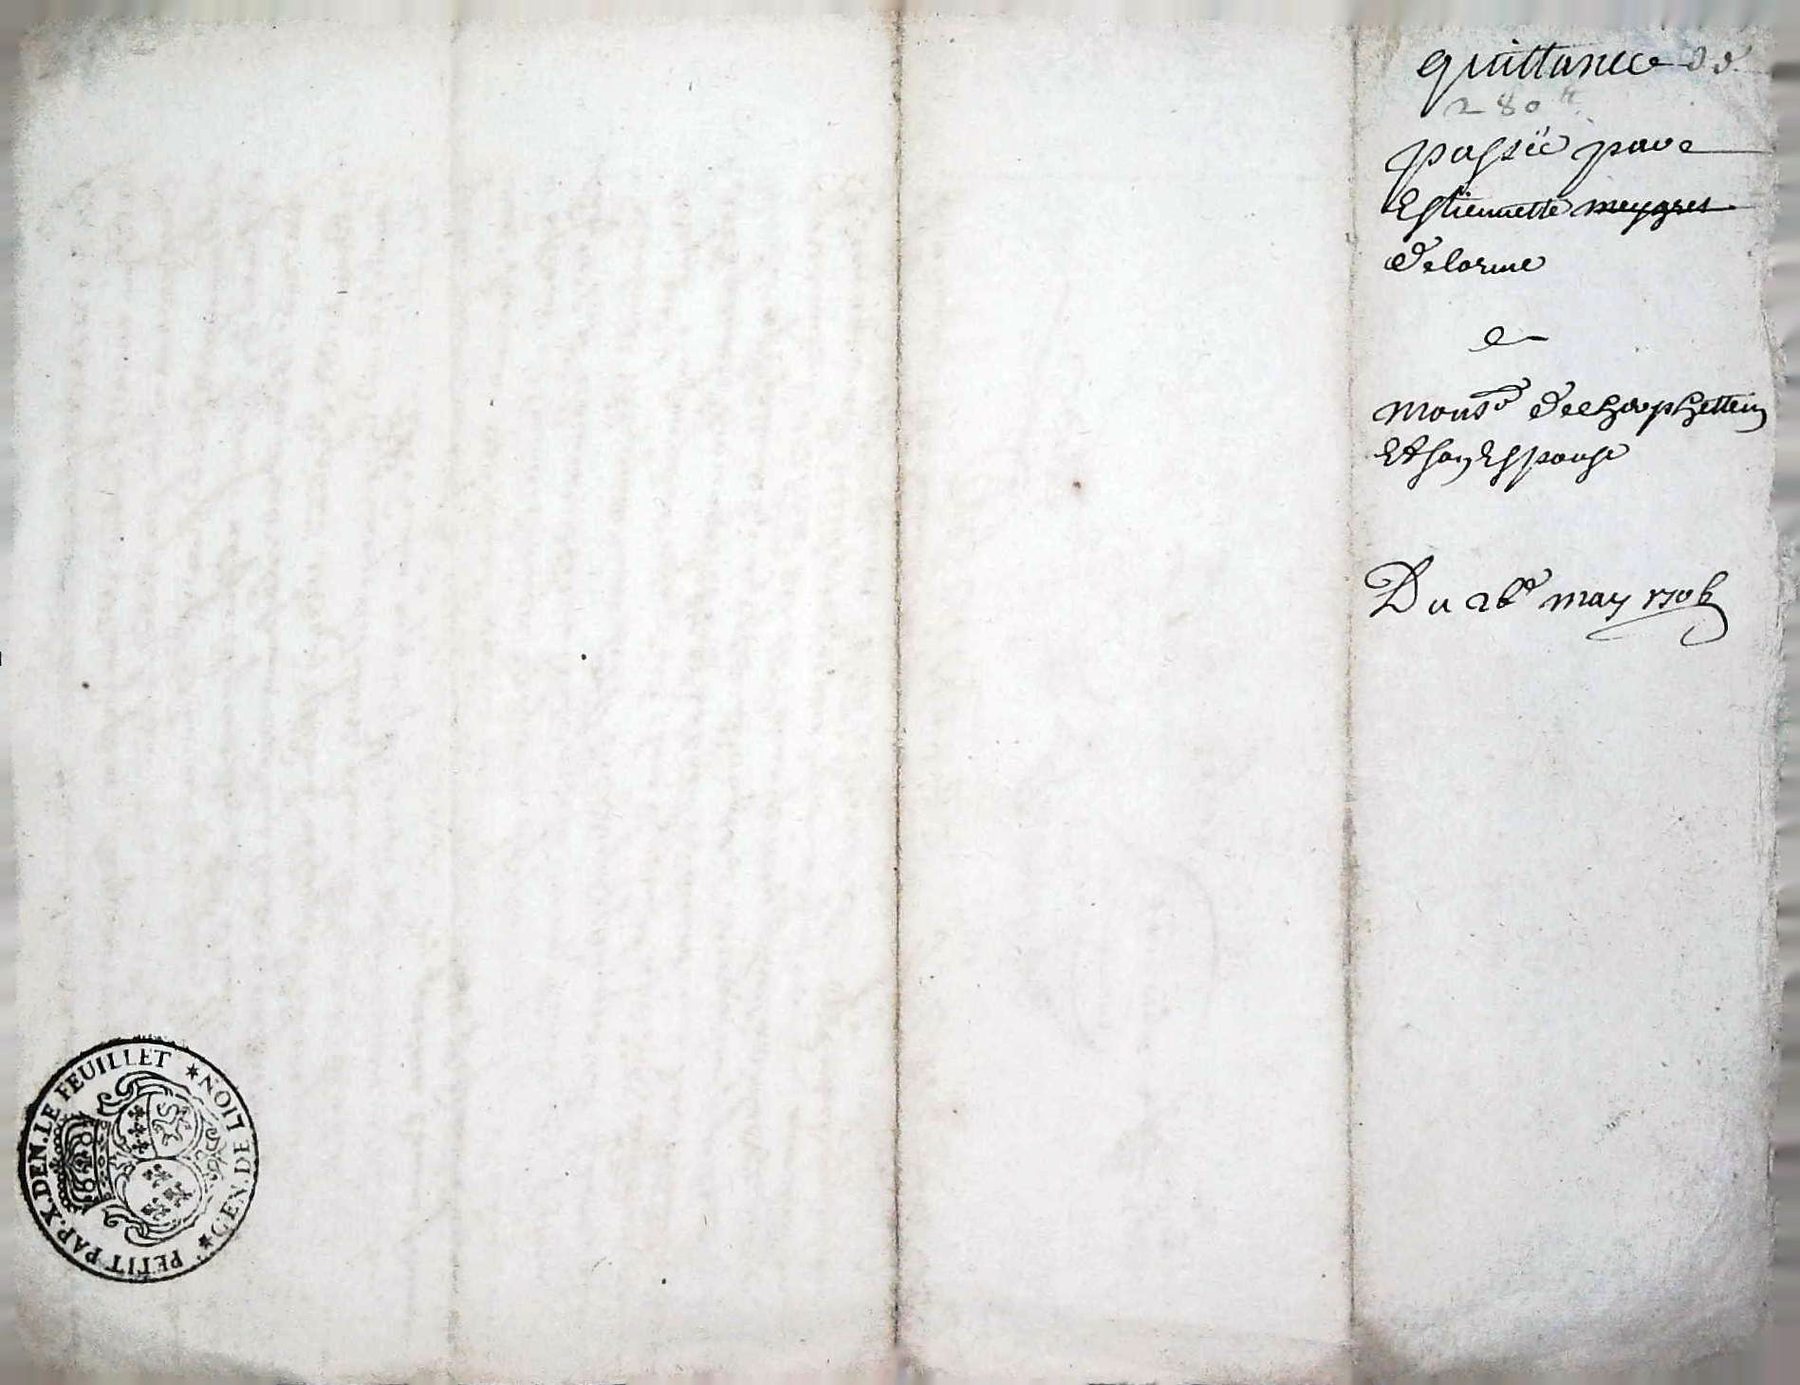 quittance de
280 ₶
passée par
Estiennette meygret
delorme
a
Monsr dechap
Et son Espouse
Du 26e may 1706
PETIT PAP.X.DEN.LE FEUILLET * GEN.DE LION *